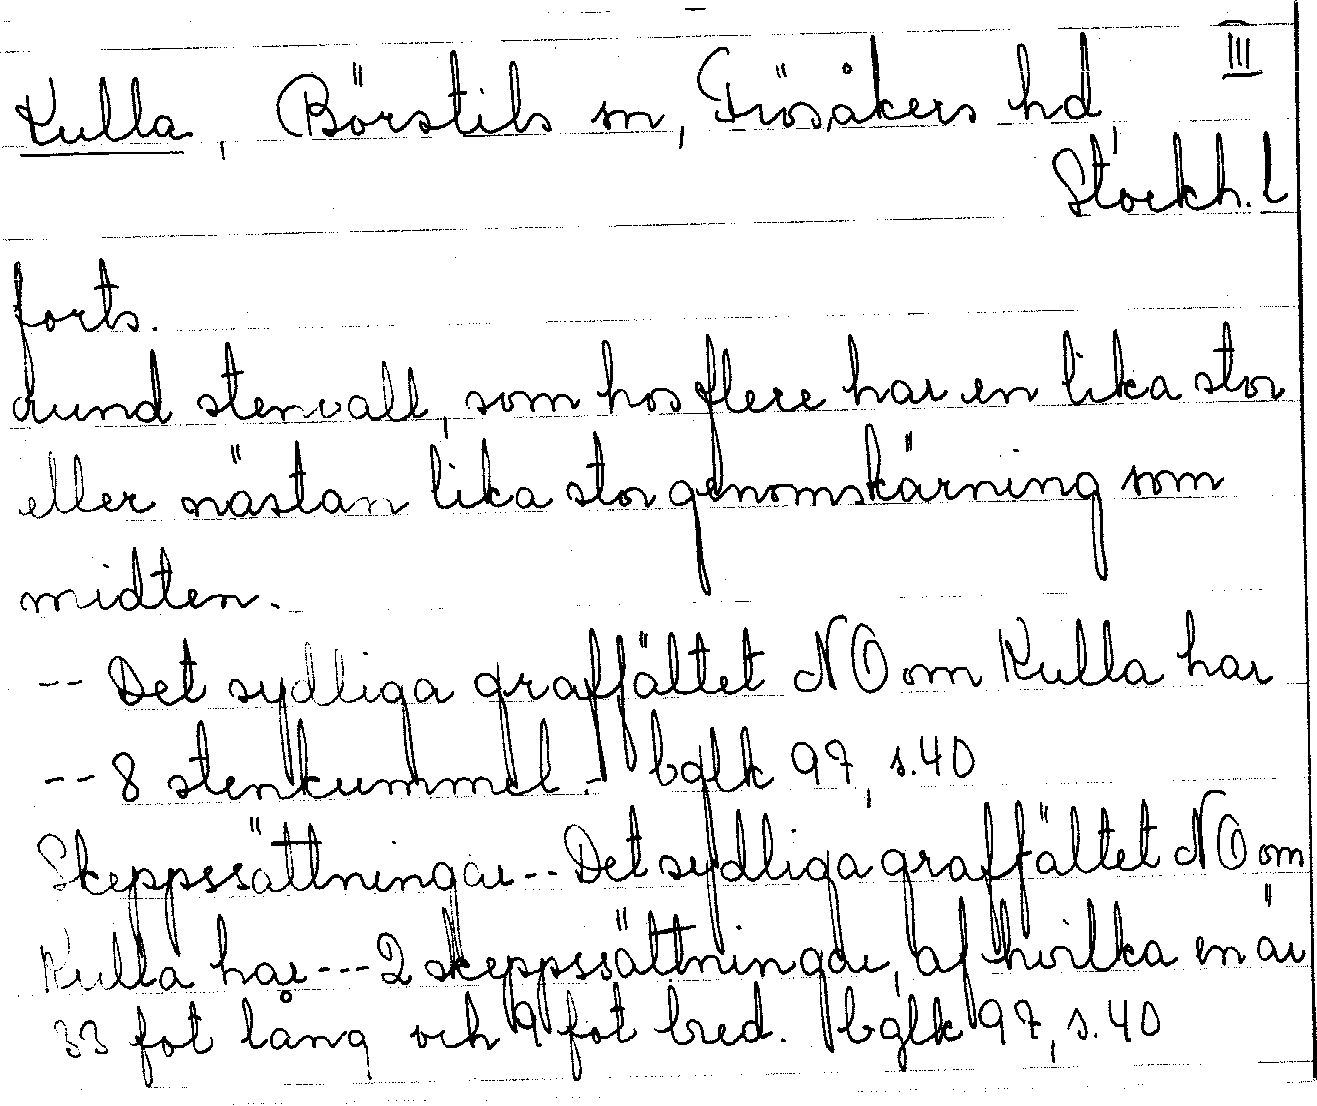 III
Kulla, Börstils sn, Frösåkers hd,
Stockh. l
forts.
rund stenvall, som hos flere har en lika stor
eller nästan lika stor genomskärning som
midten.
-- Det sydliga graffältet NO om Kulla har
-- 8 stenkummel. - bglk 97, s. 40
Skeppssättningar -- Det sydliga graffältet NO om
Kulla har --- 2 skeppssättningar, af hvilka en är
33 fot lång och 9 fot bred. bglk 97, s. 40